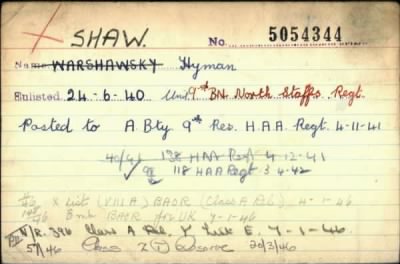 SHAW. No. 5054344
Name WARSHAWSKY Hyman
Enlisted 24-6-40 Unit 9th BN. North Staffs Regt.
Posted to A Bty 9th Res. H.A.A. Regt. 4-11-41
138 HAA Regt 4-12-41
118 HAA Regt 3 4-42
X List (VIII A) BAOR (Class A Rel) 4-1-46
Emb BAOR for UK 4-1-46
N/R. 396 Class A Rel. Y List E. 7-1-46.
57/46 Class Z (T) Reserve 20/3/46